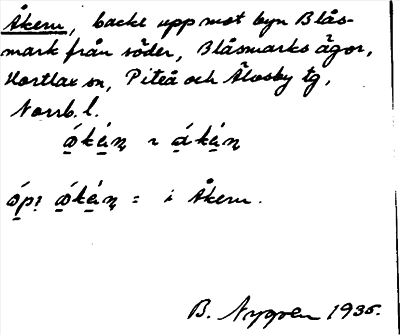 Åkern, backe upp mot byn Blås-
mark från söder, Blåsmarks ägor,
Hortlax sn, Piteå och Älvsby tg,
Norrb. l.
= i Åkern.
B. Nygren 1935.